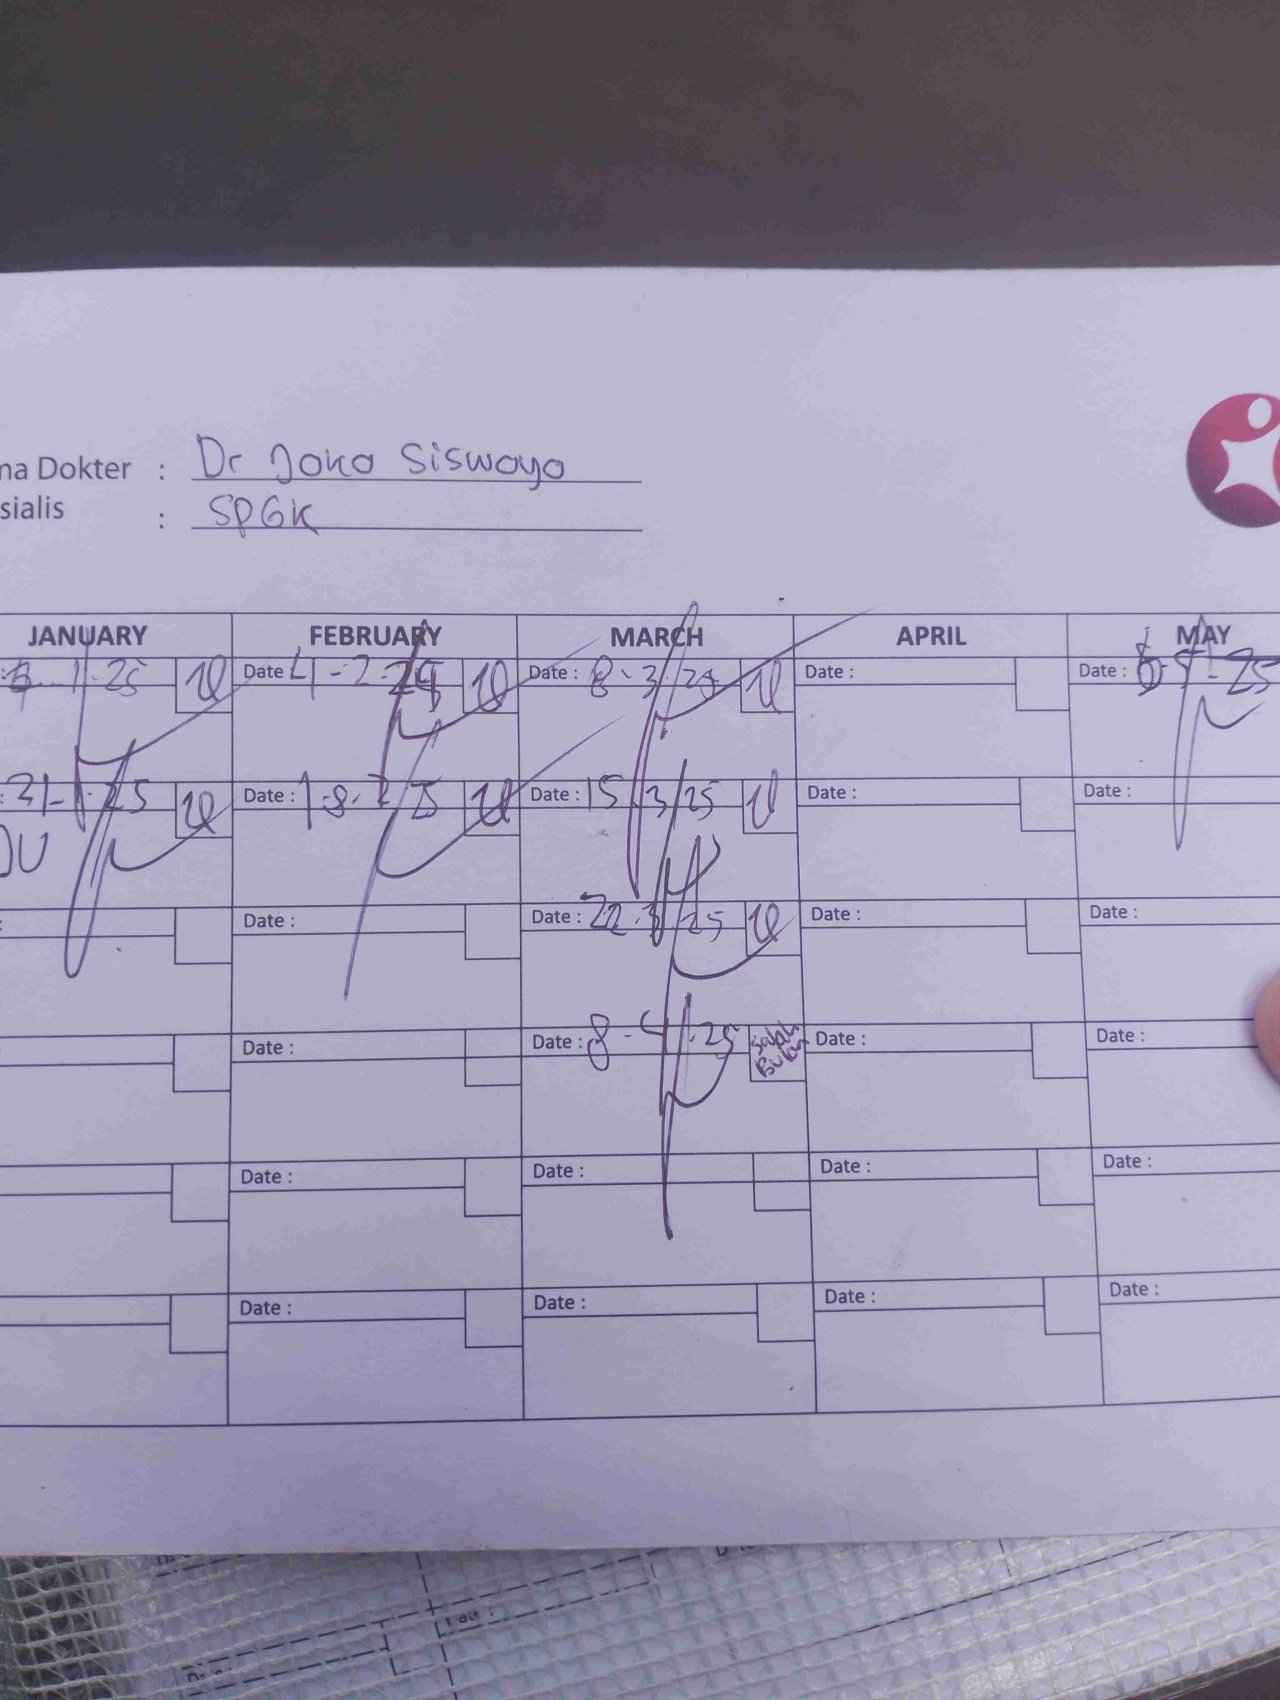 na Dokter : Dr Joko Siswoyo
sialis : SPGK
JANUARY FEBRUARY MARCH APRIL MAY
1-25 Date 4-2-25 Date : 8-3/25 Date : Date : 5-25
: 21-1-25 Date : 18-2-25 Date : 15/3/25 Date : Date :
DU
: Date : Date : 22-3/25 Date : Date :
Date : Date : 8-4-25 Salah Bulan Date : Date :
Date : Date : Date : Date :
Date : Date : Date : Date :